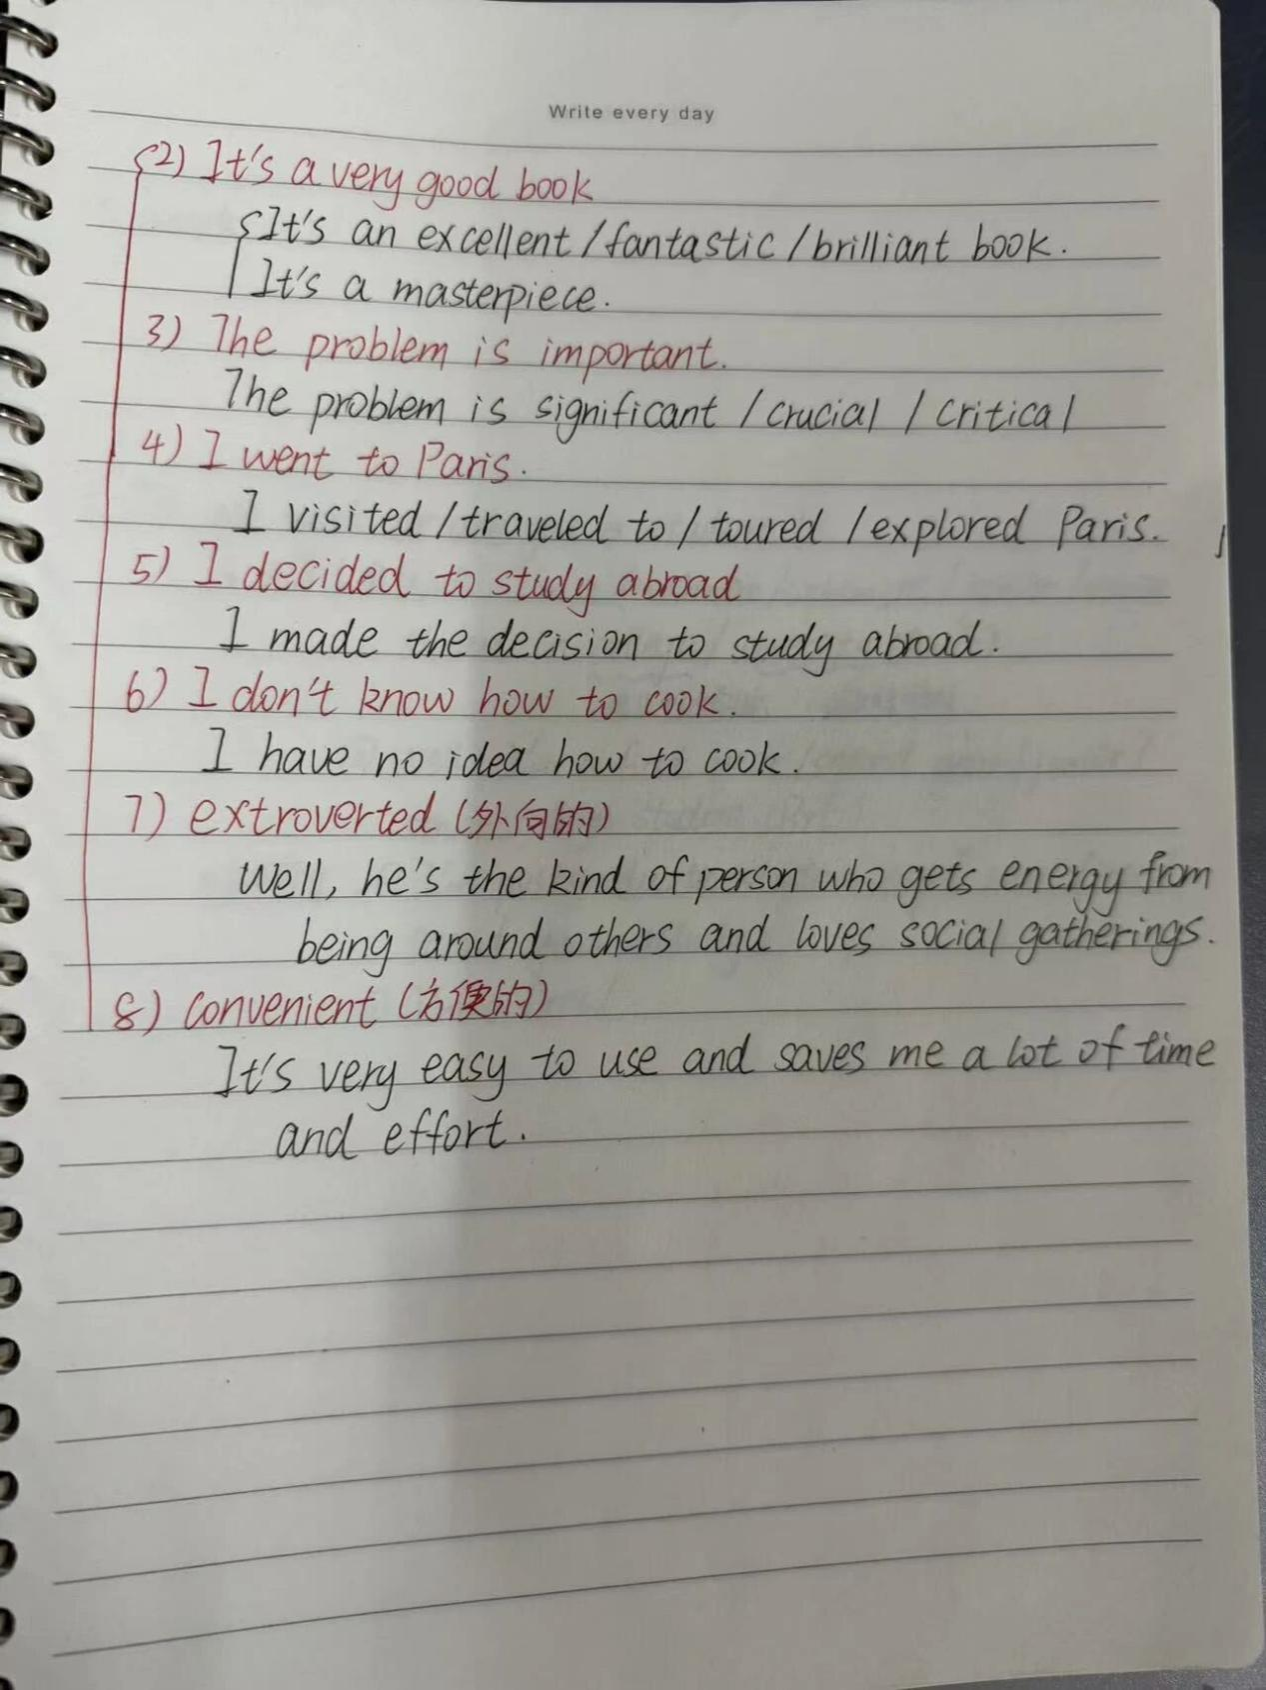 Write every day
2) It's a very good book
It's an excellent/fantastic/brilliant book.
It's a masterpiece.
3) The problem is important.
The problem is significant / crucial / critical
4) I went to Paris.
I visited /traveled to / toured /explored Paris.
5) I decided to study abroad
I made the decision to study abroad.
6) I don't know how to cook.
I have no idea how to cook.
7) extroverted (外向的)
Well, he's the kind of person who gets energy from
being around others and loves social gatherings.
8) convenient (方便的)
It's very easy to use and saves me a lot of time
and effort.